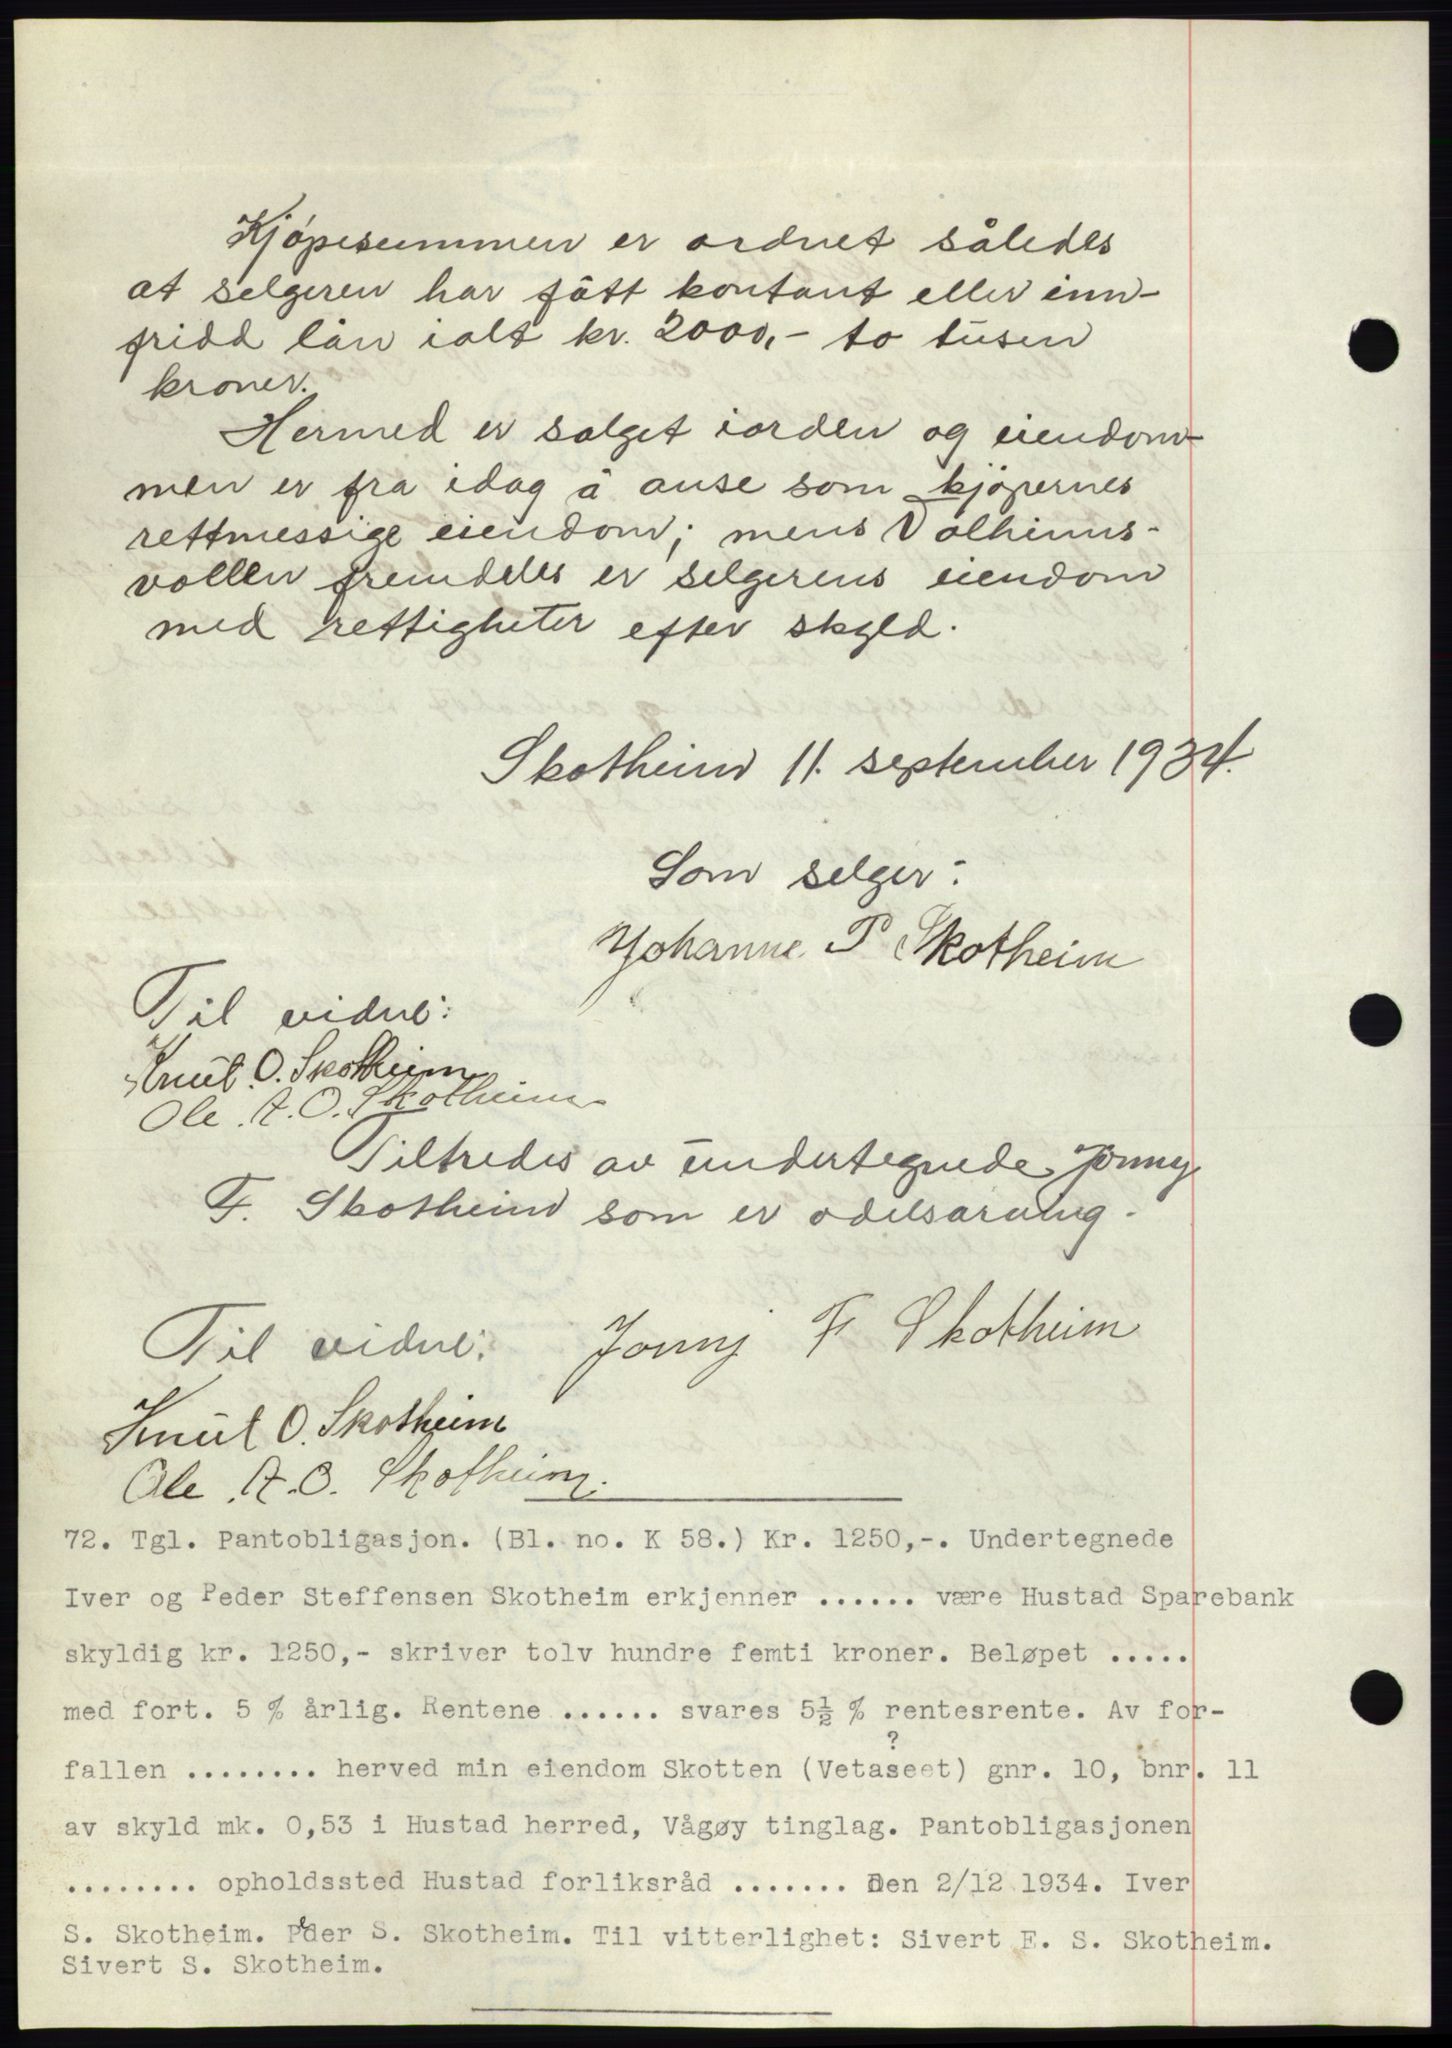 Kjøpesummen er ordnet således
at selgeren har fått kontant eller inn-
fridd lån ialt kr. 2000,- to tusen
kroner.
Hermed er salget iorden og eiendom-
men er fra idag å anse som kjøpernes
rettmessige eiendom; mens Volhims-
vollen fremdeles er selgerens eiendom
med rettigheter efter skyld.
Skotheim 11. september 1934.
Som selger:
Johanne P Skotheim
Til vidne:
Knut O. Skotheim
Ole A. O. Skotheim
Tiltredes av undertegnede Jonny
F. Skotheim som er odelsarving.
Til vidne: Jonny F Skotheim
Knut O. Skotheim
Ole A. O. Skotheim.
72. Tgl. Pantobligasjon. (Bl. no. K 58.) Kr. 1250,-. Undertegnede
Iver og Peder Steffensen Skotheim erkjenner ...... være Hustad Sparebank
skyldig kr. 1250,- skriver tolv hundre femti kroner. Beløpet .....
med fort. 5 % årlig. Rentene ...... svares 5½ % rentesrente. Av for-
?
fallen ........ herved min eiendom Skotten (Vetaseet) gnr. 10, bnr. 11
av skyld mk. 0,53 i Hustad herred, Vågøy tinglag. Pantobligasjonen
........ opholdssted Hustad forliksråd ....... Den 2/12 1934. Iver
S. Skotheim. Peder S. Skotheim. Til vitterlighet: Sivert E. S. Skotheim.
Sivert S. Skotheim.